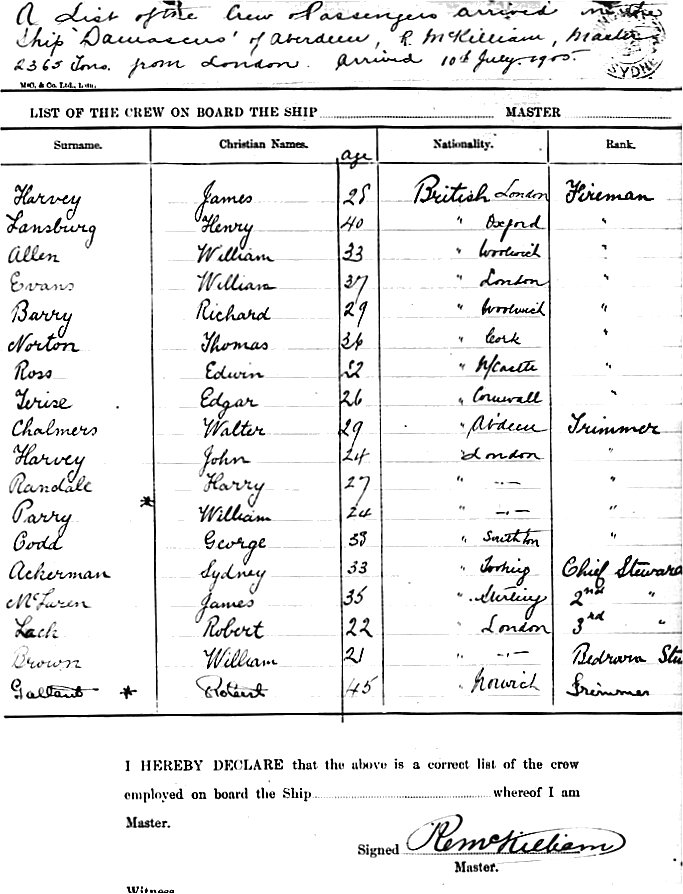 A List of the Crew & Passengers arrived in the
Ship "Damascus" of Aberdeen, R. McKilliam, Master
2365 Tons. from London. Arrived 10th July 1905.
SYDNE
McC. & Co. Ltd., Ldn.
LIST OF THE CREW ON BOARD THE SHIP MASTER
Surname. Christian Names. age Nationality. Rank.
Harvey James 28 British London Fireman
Lansburg Henry 40 " Oxford "
Allen William 33 " Woolwich "
Evans William 37 " London "
Barry Richard 29 " Woolwich "
Norton Thomas 36 " Cork "
Ross Edwin 22 " N/Castle "
Terise Edgar 26 " Cornwall "
Chalmers Walter 29 " Abdeen Trimmer
Harvey John 24 " London "
Randale Harry 27 " -,- "
Parry * William 24 " -,- "
Codd George 38 " Southton "
Ackerman Sydney 33 " Tooting Chief Steward
McLaren James 35 " Stirling 2nd "
Lack Robert 22 " London 3rd "
Brown William 21 " -,- Bedroom Stu
* Robert 45 " Norwich Trimmer
I HEREBY DECLARE that the above is a correct list of the crew
employed on board the Ship whereof I am
Master.
Signed R McKilliam
Master.
Witness